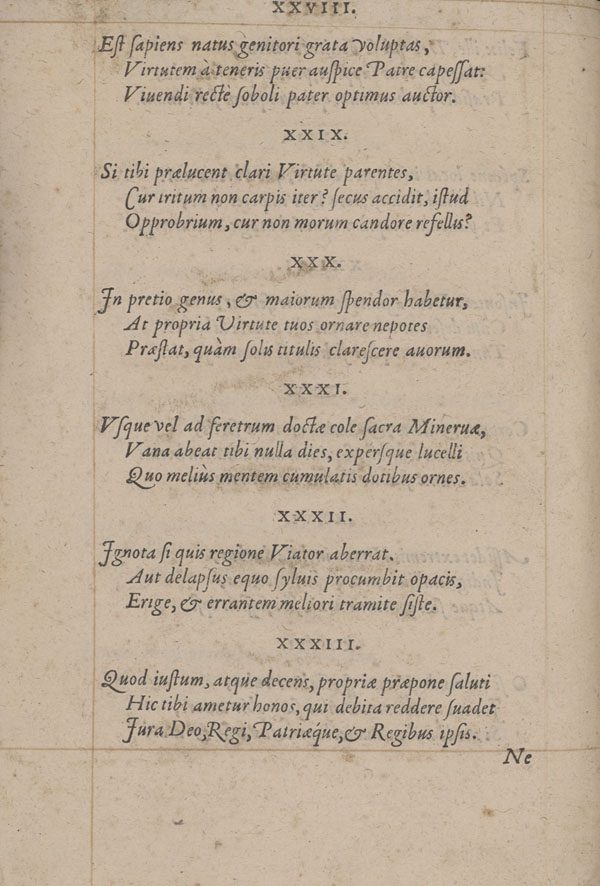 XXVIII.
Est sapiens natus genitori grata voluptas,
Virtutem à teneris puer auspice Patre capessat:
Viuendi rectè soboli pater optimus auctor.
XXIX.
Si tibi prælucent clari Virtute parentes,
Cur tritum non carpis iter? secus accidit, istud
Opprobrium, cur non morum candore refellis?
XXX.
In pretio genus, & maiorum spendor habetur,
At propria Virtute tuos ornare nepotes
Præstat, quàm solis titulis clarescere auorum.
XXXI.
Vsque vel ad feretrum doctæ cole sacra Mineruæ,
Vana abeat tibi nulla dies, expersque lucelli
Quo meliùs mentem cumulatis dotibus ornes.
XXXII.
Ignota si quis regione Viator aberrat.
Aut delapsus equo syluis procumbit opacis,
Erige, & errantem meliori tramite siste.
XXXIII.
Quod iustum, atque decens, propriæ præpone saluti
Hic tibi ametur honos, qui debita reddere suadet
Jura Deo, Regi, Patriæque, & Regibus ipsis.
Ne